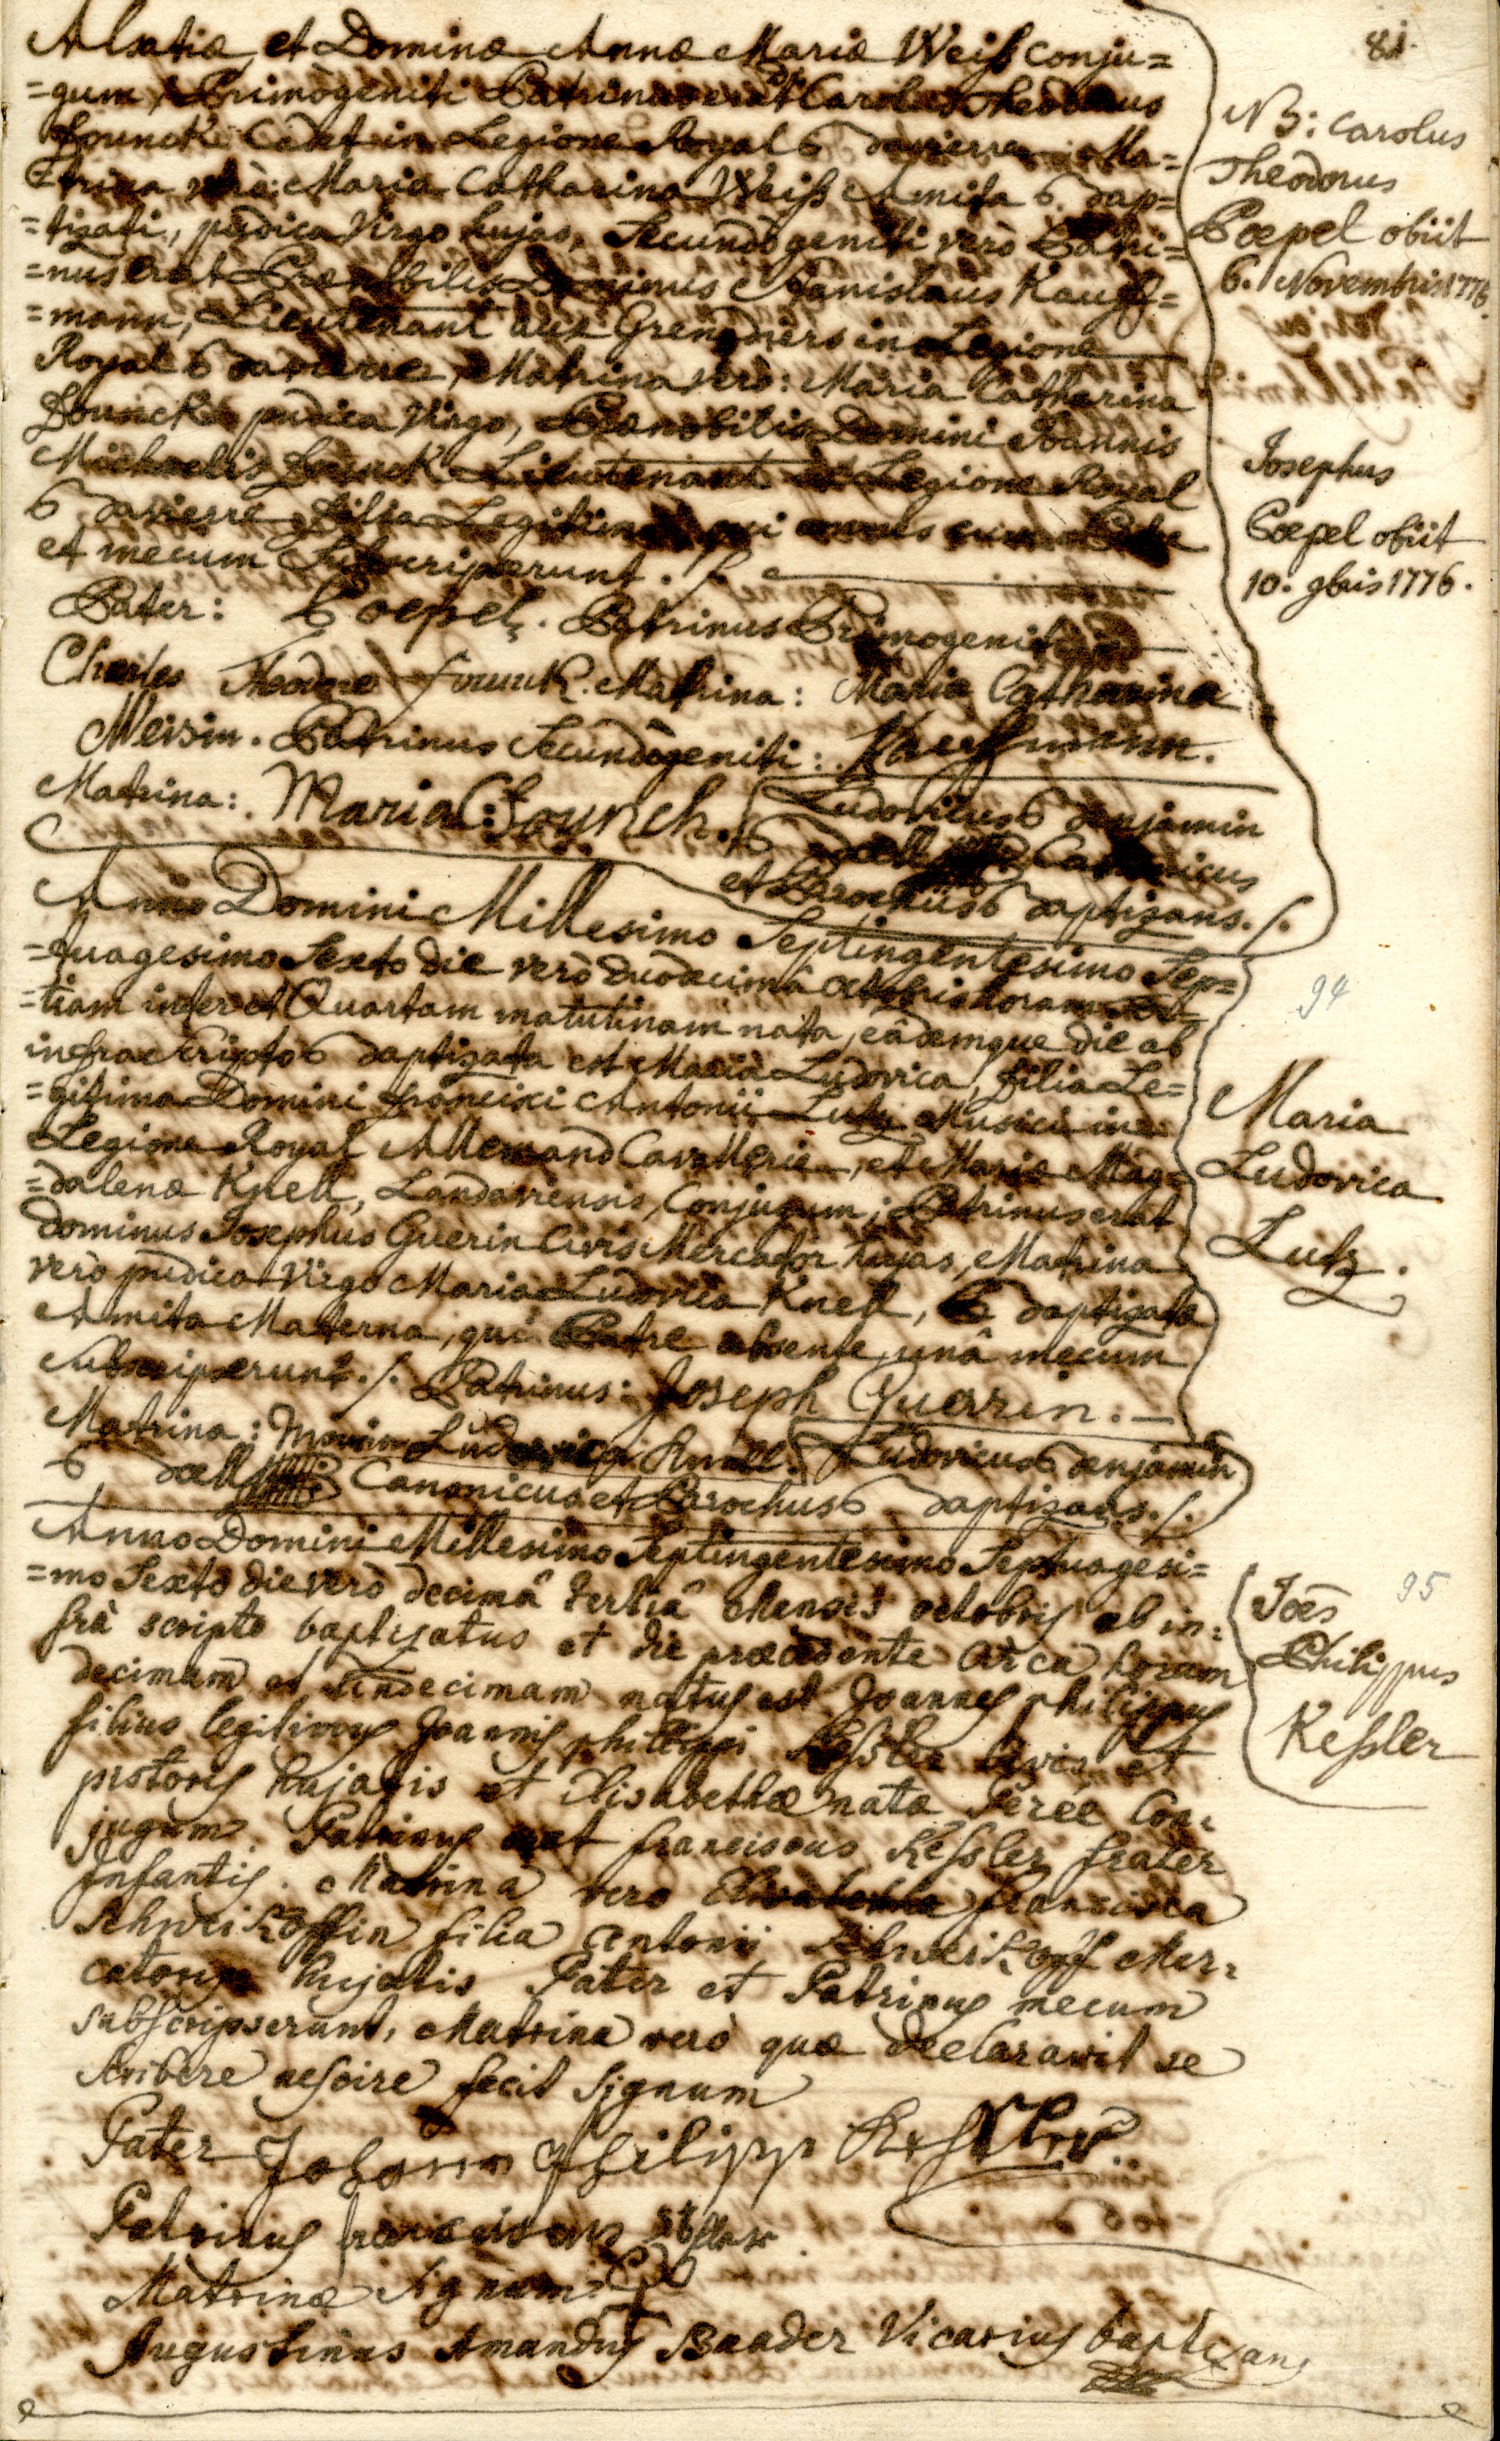 81.
Alsatiæ, et Dominæ Annæ Mariæ Weiss conju=
=gum, Primogeniti Patrinus erat Carolus Theodorus
Founck Cadet in Legione Royal Bavierre, Ma=
=trina verò: Maria Catharina Weiss Amita Bap=
=tizati, pudica Virgo hujas, Secundogeniti verò Patri=
=nus erat Prænobilis Dominus Stanislaus Kauff=
=mann, Lieutenant aux Grenadiers in Legione
Royal Bavierre, Matrina verò: Maria Catharina
Founck pudica Virgo, Prænobilis Domini Joannis
Michaelis Founck Lieutenant in Legione Royal
Bavierre filia Legitima, qui omnes cum Patre
et mecum Subscripserunt. /.
Pater: Poepel. Patrinus Primogeniti
Charles Theodore founck. Matrina: Maria Catharina
Weisin. Patrinus Secundògeniti: Kauffmann.
Matrina: Maria C: Founck. Ludovicus Benjamin
Canonicus
et Parochus Baptizans. /.
NB: Carolus
Theodorus
Poepel obiit
6. Novembris 1776.
Josephus
Poepel obiit
10: 9bris 1776.
Anno Domini Millesimo Septingentesimo Sep=
=tuagesimo Sexto die verò duodecimâ octobris horam
=tiam inter et Quartam matutinam nata, eâdemque die ab
infrascripto Baptizata est Maria Ludovica, filia Le=
=gitima Domini francisci Antonii Lutz Musici in
Legione Royal Allemand Cavallerie, et Mariæ Mag=
=dalenæ Knell, Landaviensis, Conjugum; Patrinus erat
dominus Josephus Guerin Civis Mercator hujas, Matrina
verò pudica Virgo Maria Ludovica Knell, Baptizatæ
Amita Materna, qui Patre absente, unâ mecum
subscripserunt. /. Patrinus: Joseph Guerrin. —
Matrina: Maria Ludovica Knell. Ludovicus Benjamin
Canonicus et Parochus Baptizans. /.
94
Maria
Ludovica
Lutz.
Anno Domini Millesimo Septingentesimo Septuagesi=
=mo Sexto die verò decimâ tertiâ Mensis octobris ab in=
frà scripto baptizatus et die præcedente circa horam
decimam et undecimam natus est Joannes philippus
filius legitimus Joannis philippi Kessler civis et
pistoris hujatis et Elisabethæ natæ Feree Con=
jugum. Patrinus erat franciscus Kessler frater
Infantis. Matrina vero francisca
Schweikoffin filia Antonii Schweikoff Mer=
catoris hujatis Pater et Patrinus mecum
subscripserunt, Matrina verò quæ declaravit se
scribere nescire fecit Signum
Pater Johann Philipp Kessler
Patrinus franciscus Kessler
Matrinæ Signum
Augustinus Amandus Baader Vicarius baptizans
95
Joes
Philippus
Kessler